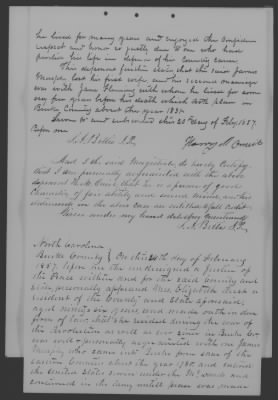 he lived for many years and enjoyed the confidence
respect and honor so justly due to one who had
periled his life in defence of his country cause
This deponent further states that the said James
Murphy lost his first wife, and his second marriage
was with Jane Fleming with whom he lived for some
very few years before his death which took place in
Burke County about the year 1830
Sworn to and subscribed this 20 day of Feby 1857.
Before me
And I the said Magistrate do hereby certify
that I am personally acquainted with the above
deponent that he is a person of good
Character of fair ability and sound mind, and his
statements in the above case are entitled to full credit
Given under my hand date above mentioned
North Carolina
Burke County } On this 20th day of February
1857. before me the undersigned a justice of
the Peace within and for the said county and
state, personally appeared Mrs. Elizabeth a
resident of the County and State aforesaid,
aged ninety six years and made oath in due
form of law, that she resided during the war of
the Revolution as well as ever since in Burke Co.
was well & personally acquainted with one James
Murphy who came into Burke from some of the
eastern Counties about the year 1780 and entered
the United States service under and
continued in the army until peace was made